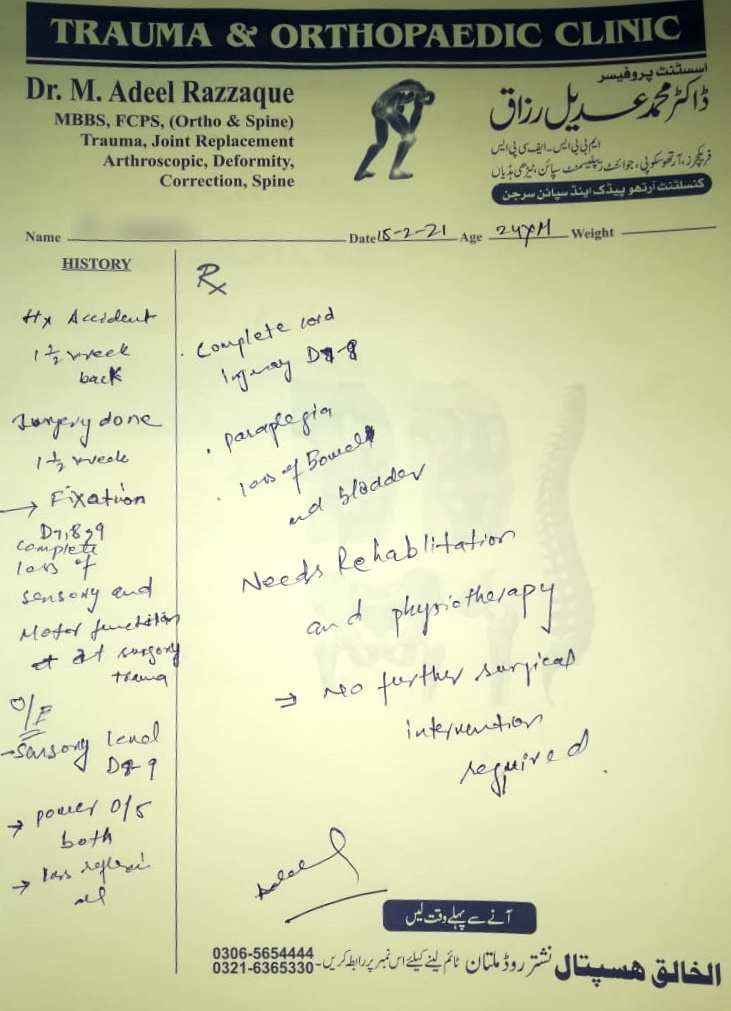 TRAUMA & ORTHOPAEDIC CLINIC
Dr. M. Adeel Razzaque
MBBS, FCPS, (Ortho & Spine)
Trauma, Joint Replacement
Arthroscopic, Deformity,
Correction, Spine
اسسٹنٹ پروفیسر
ڈاکٹر محمد عدیل رزاق
ایم بی بی ایس۔ایف سی پی ایس
فریکچرز، آرتھوسکوپی، جوائنٹ ریپلیسمنٹ سپائن، ٹیڑھی ہڈیاں
کنسلٹنٹ آرتھو پیڈک اینڈ سپائن سرجن
Name Date 15-2-21 Age 24yM Weight
HISTORY
Hx Accident
1 1/2 week
back
Surgery done
1 1/2 week
→ Fixation
D7,8,9
complete
loss of
sensory and
Motor function
at surgery
O/E
→ Sensory level
D8-9
→ power 0/5
both
→ loss
all
Rx
. Complete cord
D7-8
. paraplegia
. loss of Bowel
and bladder
Needs Rehablitation
and physiotherapy
⇒ No further surgical
intervention
required.
Adeel
آنے سے پہلے وقت لیں
0306-5654444
0321-6365330
الخالق ہسپتال نشتر روڈ ملتان ٹائم لینے کیلئے اس نمبر پر رابطہ کریں۔